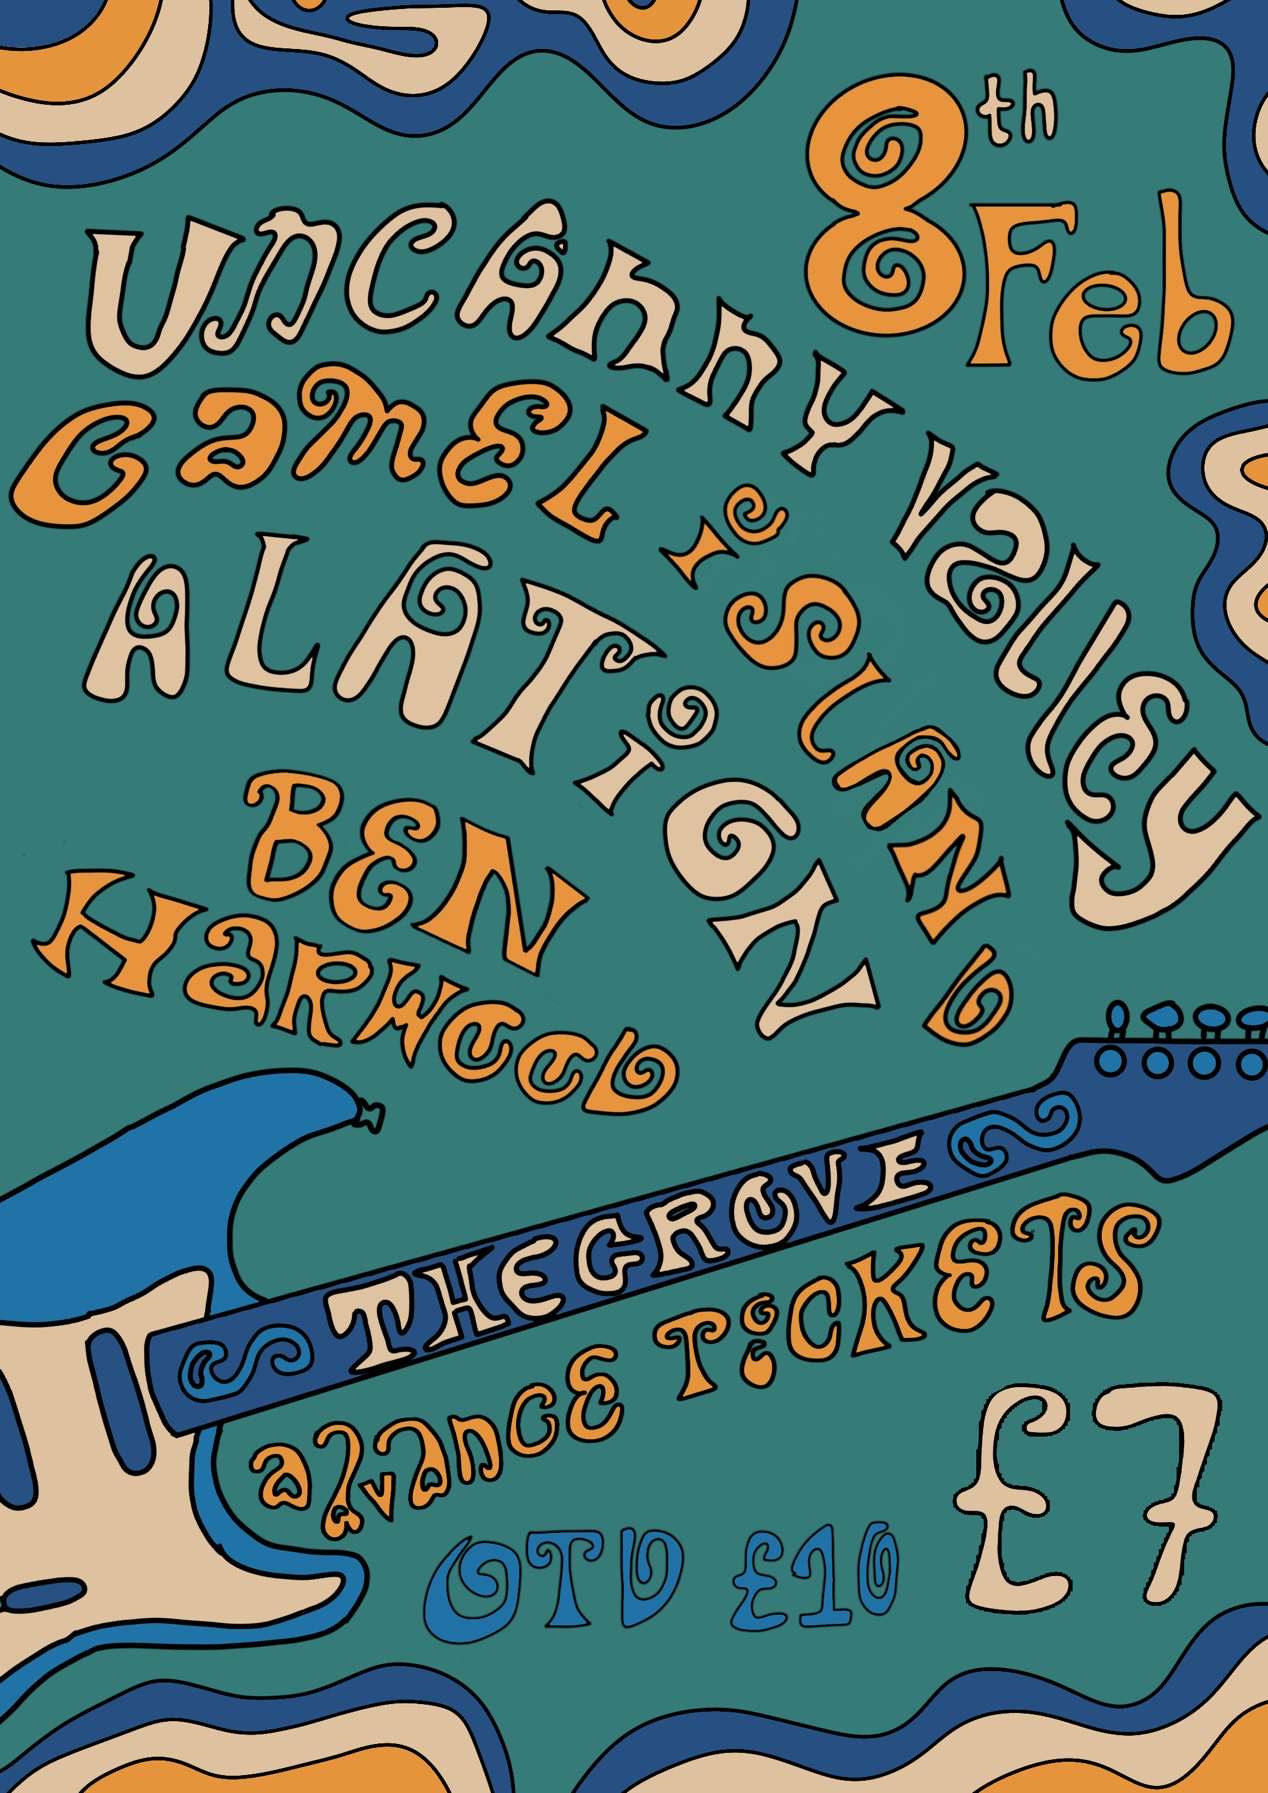 8th
Feb
UnCAnny Valley
CamEL iSLAND
ALATiGN
BEN
HaRWOOD
THE GROVE
advanCE TiCKETS
£7
OTD £10